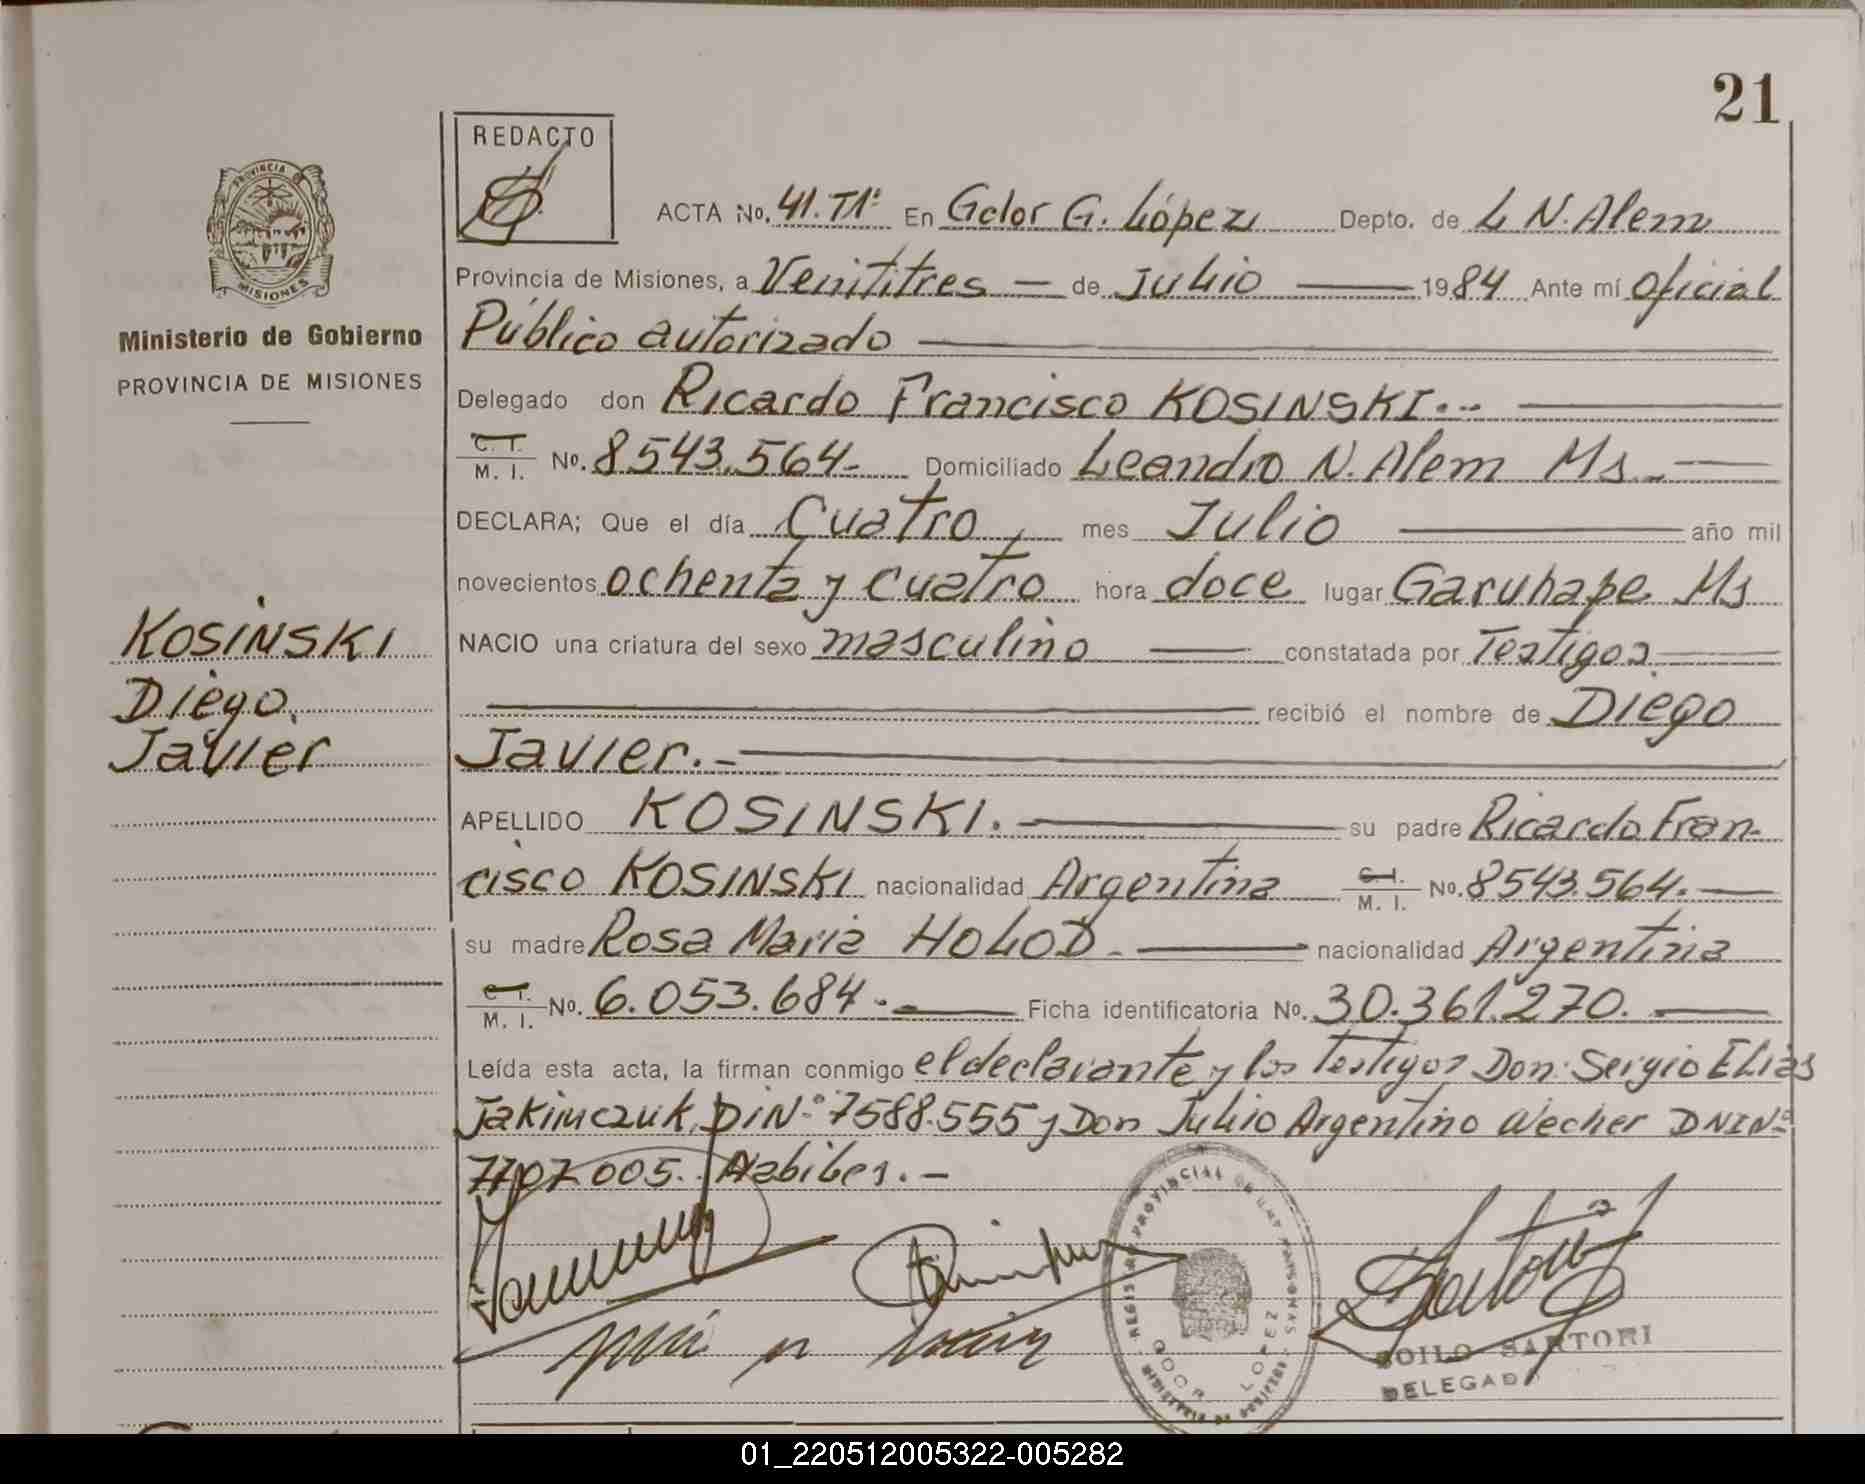 21
REDACTO
ACTA No. 41. Tº1º En Gdor G. López Depto. de L N. Alem
PROVINCIA DE MISIONES
Provincia de Misiones, a Veintitres — de Julio — 1984 Ante mí oficial
Ministerio de Gobierno
PROVINCIA DE MISIONES
Público autorizado
Delegado don Ricardo Francisco KOSINSKI.--
C. I.
M. I. No. 8543.564.- Domiciliado Leandro N. Alem Ms.-
DECLARA; Que el día Cuatro, mes Julio — año mil
novecientos ochenta y cuatro hora doce lugar Garuhape Ms
KOSINSKI
Diego
Javier
NACIO una criatura del sexo masculino — constatada por Testigos
recibió el nombre de Diego
Javier.-
APELLIDO KOSINSKI. — su padre Ricardo Fran-
cisco KOSINSKI nacionalidad Argentina C. I. M. I. No. 8543.564.-
su madre Rosa Maria HOLOD.- nacionalidad Argentina
C. I.
M. I. No. 6.053.684.- Ficha identificatoria No. 30.361.270.
Leída esta acta, la firman conmigo el declarante y los Testigos Don: Sergio Elias
Jakimczuk, DiNº 7588.555 y Don Julio Argentino Wecher DNINº
7707005. Habiles.-
REGISTRO PROVINCIAL DE LAS PERSONAS
GDOR LOPEZ
MINISTERIO DE GOBIERNO
SOILO SARTORI
DELEGADO
01_220512005322-005282